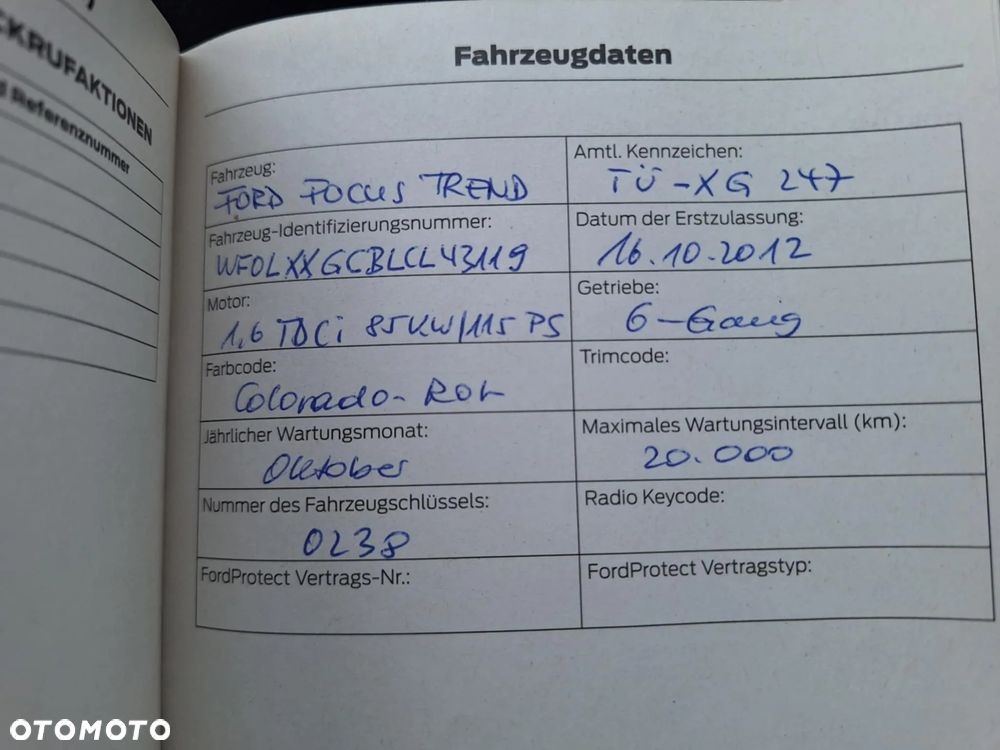 CKRUFAKTIONEN
Referenznummer
Fahrzeugdaten
Fahrzeug:
FORD FOCUS TREND
Amtl. Kennzeichen:
TÜ-XG 247
Fahrzeug-Identifizierungsnummer:
WF0LXXGCBLCL43119
Datum der Erstzulassung:
16.10.2012
Motor:
1,6 TDCi 85KW/115 PS
Getriebe:
6-Gang
Farbcode:
Colorado-Rot
Trimcode:
Jährlicher Wartungsmonat:
Oktober
Maximales Wartungsintervall (km):
20.000
Nummer des Fahrzeugschlüssels:
0238
Radio Keycode:
FordProtect Vertrags-Nr.:
FordProtect Vertragstyp:
OTOMOTO